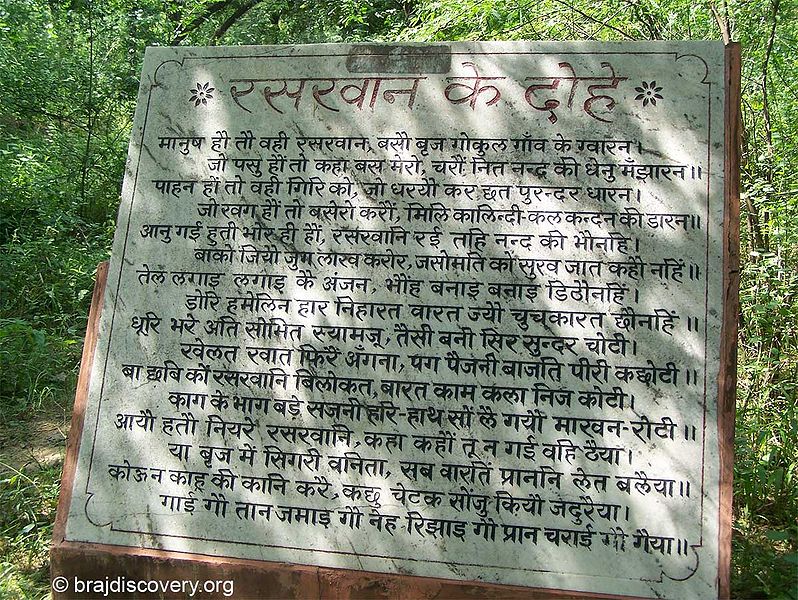 रसखान के दोहे
मानुष हौं तौ वही रसखान, बसौ बृज गोकुल गाँव के ग्वारन।
जो पसु हौं तो कहा बस मेरो, चरौं नित नन्द की धेनु मँझारन॥
पाहन हौं तो वही गिरि को, जो धरयौ कर छत्र पुरन्दर धारन।
जो खग हौं तो बसेरो करौं, मिलि कालिन्दी-कूल कन्दन की डारन॥
आनु गई हुती भोर ही हौं, रसखानि रई तहि नन्द की भौनहिं।
बाको जियौ जुग लाख करोर, जसोमति को सुख जात कहौ नहिं॥
तेल लगाइ लगाइ कै अंजन, भौंह बनाई बनाई डिठौनहिं।
डोरि हमेलिन हार निहारत वारत ज्यौं चुचकारत छौनहिं॥
धूरि भरे अति सोभित स्यामजू, तैसी बनी सिर सुन्दर चोटी।
खेलत खात फिरैं अंगना, पग पैजनी बाजति पीरी कछोटी॥
बा छबि कों रसखानि बिलोकत, बारत काम कला निज कोटी।
काग के भाग बड़े सजनी हरि-हाथ सों लै गयौ माखन-रोटी॥
आयौ हतौ नियरे रसखानि, कहा कहौं तू न गई वहि ठैया।
या बृज में सिगरी वनिता, सब वारतिं प्राननि लेत बलैया॥
कोऊ न काहू की कानि करै, कछु चेटक सौंजु कियौ जदुरैया।
गाई गौ तान जमाइ गौ नेह रिझाइ गौ प्रान चराई गौ गैया॥
© brajdiscovery.org